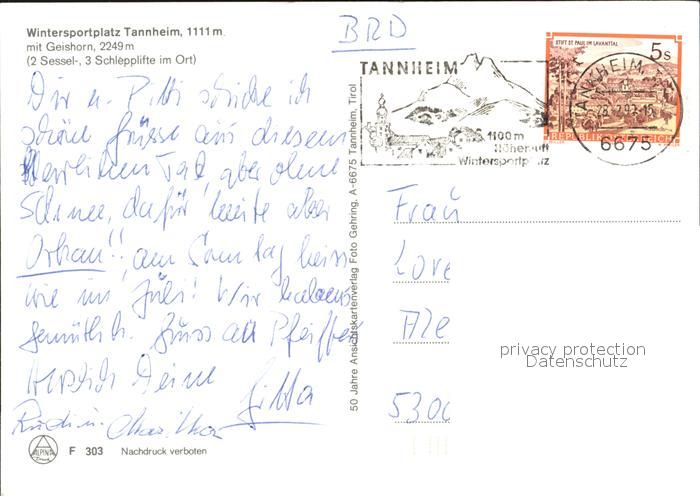 Wintersportplatz Tannheim, 1111 m
mit Geishorn, 2249 m
(2 Sessel-, 3 Schlepplifte im Ort)
Dir u. Pitti schicke ich
schöne Grüsse aus diesem
herrlichen Tal, aber ohne
Schnee, dafür heute aber
Orkan!! am Sonntag heiss
wie im Juli! Wir haben's
gemütlich. Gruss an Pfeiffer
Herzlich Deine
Gitta
Rudi u.
ALPINA
F 303 Nachdruck verboten
50 Jahre Ansichtskartenverlag Foto Gehring, A-6675 Tannheim, Tirol
BRD
TANNHEIM
1100 m
Höhenluft
Wintersportplatz
STIFT ST. PAUL IM LAVANTTAL
5s
REPUBLIK ÖSTERREICH
TANNHEIM
6675
Frau
Lore
Ale
5300
privacy protection
Datenschutz